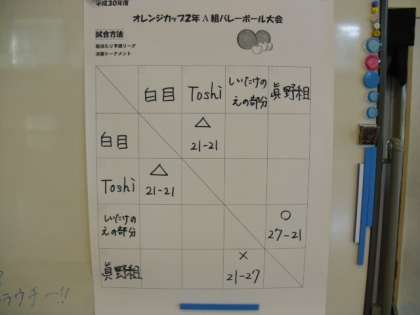 平成30年度
オレンジカップ2年A組バレーボール大会
試合方法
総当たり予選リーグ
決勝トーナメント
白目 Toshi しいたけの えの部分 眞野組
白目 △ 21-21
Toshi △ 21-21
しいたけの えの部分 ○ 27-21
眞野組 × 21-27
ラウチー!!